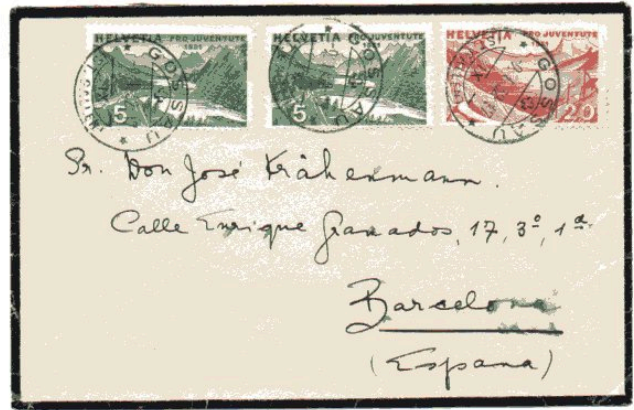 HELVETIA PRO JUVENTUTE 1931 5
HELVETIA PRO JUVENTUTE 5
HELVETIA PRO JUVENTUTE 1931 20
GOSSAU
GOSSAU
GOSSAU
Sr. Don José Krähenmann.
Calle Enrique Granados, 17, 3º, 1ª
Barcelona
(Espana)